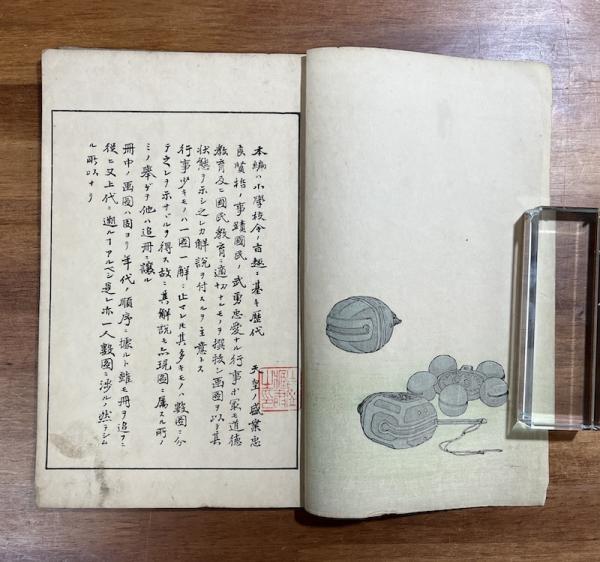 本編ハ小學校令ノ旨趣ニ基キ歴代
天皇ノ盛業忠
良賢哲ノ事蹟國民ノ武勇忠愛ナル行事等最モ道德
教育及ニ國民教育ニ適切ナルモノヲ撰抜シ画圖ヲ以テ其
状態ヲ示シ之レカ解説ヲ付スルヲ主意トス
行事少キモノハ一圖一解ニ止マレ圧其多キモノハ数圖ニ分
テ之レヲ示サヾルヲ得ス故ニ其解説モ亦現圖ニ属スル所ノ
ミノ舉ゲテ他ハ追冊ニ譲ル
冊中ノ画圖ハ固ヨリ年代ノ順序ニ據ルト雖モ冊ヲ追フニ
従ヒ又上代ニ遡ルヿアルベシ是レ亦一人数圖ニ渉ルノ然ラシム
ル所以ナリ